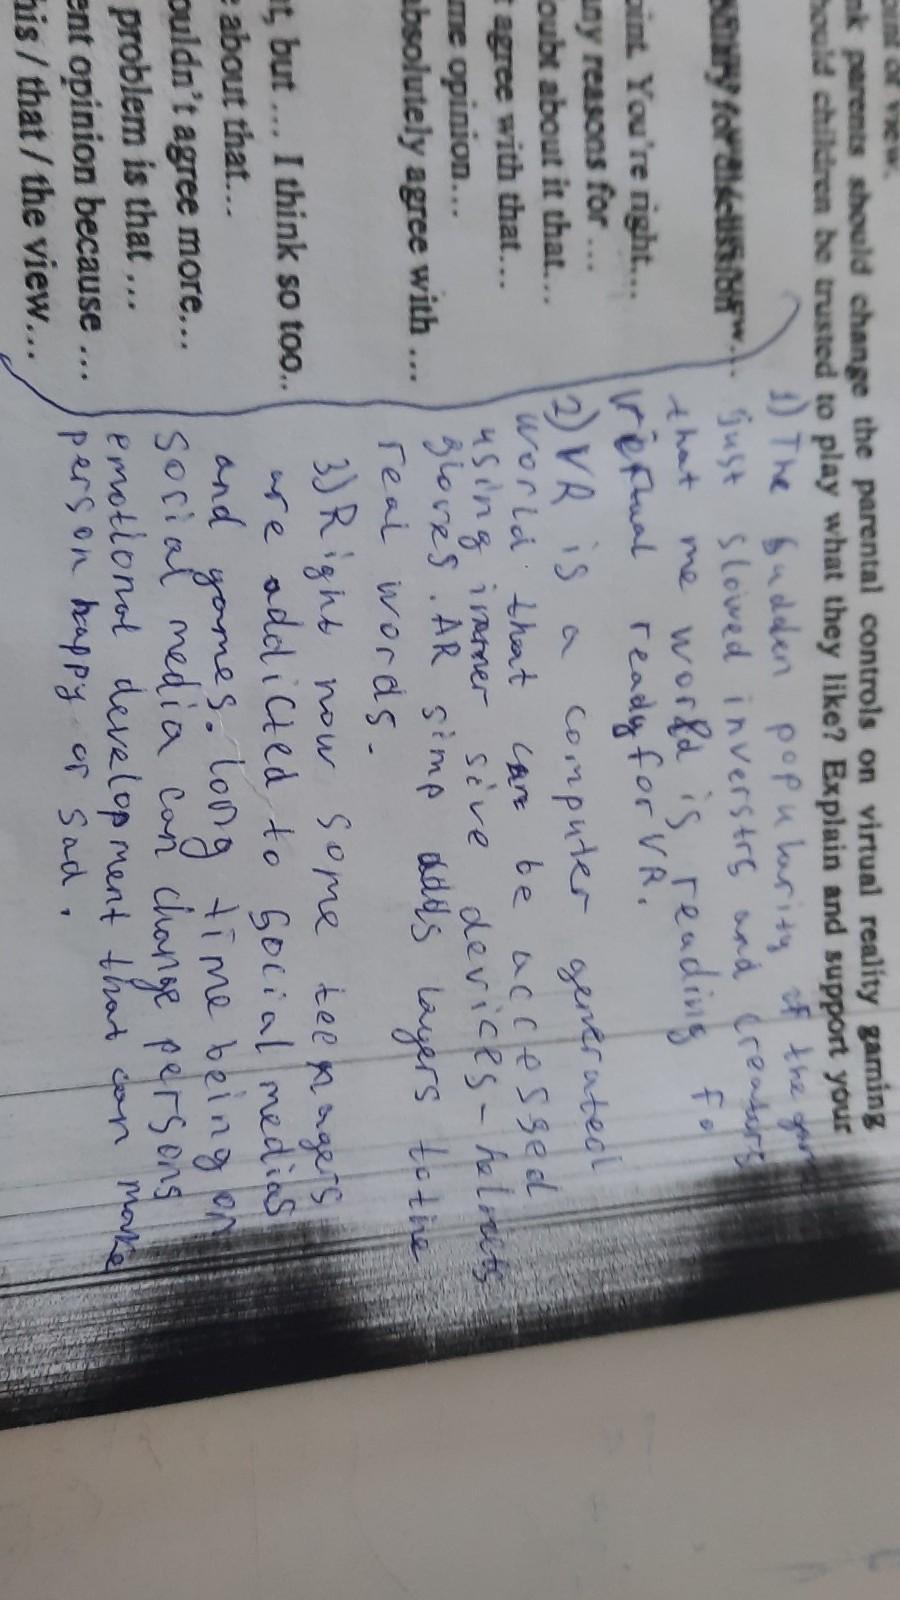 oint of view.
nk parents should change the parental controls on virtual reality gaming
hould children be trusted to play what they like? Explain and support your
oint. You're right…
any reasons for …
oubt about it that…
t agree with that…
me opinion…
absolutely agree with …
t, but … I think so too..
e about that…
ouldn't agree more…
problem is that …
ent opinion because …
his / that / the view…
1) The sudden popularity of the
just slowed inverstrs and creators
that me world is reading fo
virtual ready for VR.
2) VR is a computer generated
world that can be accessed
using immer sive devices - halmets
gloves. AR simp adds layers to the
real words.
3) Right now some teenagers
are addicted to social medias
and games. long time being on
social media can change persons
emotional development that can make
person happy or sad.